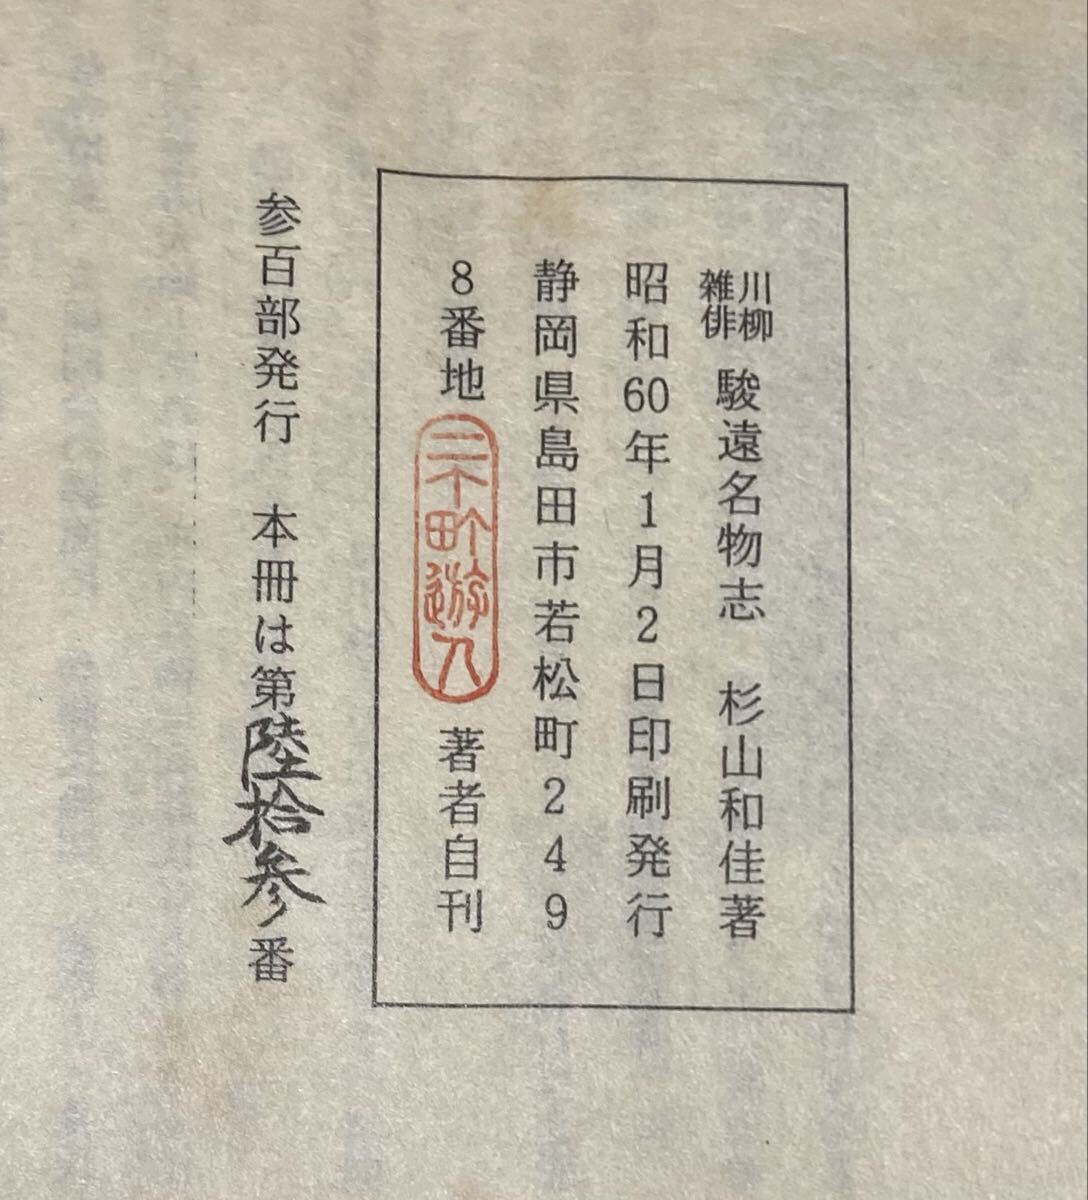 川柳
雑俳 駿遠名物志 杉山和佳著
昭和60年1月2日印刷発行
静岡県島田市若松町249
8番地 著者自刊
参百部発行 本冊は第陸拾参番